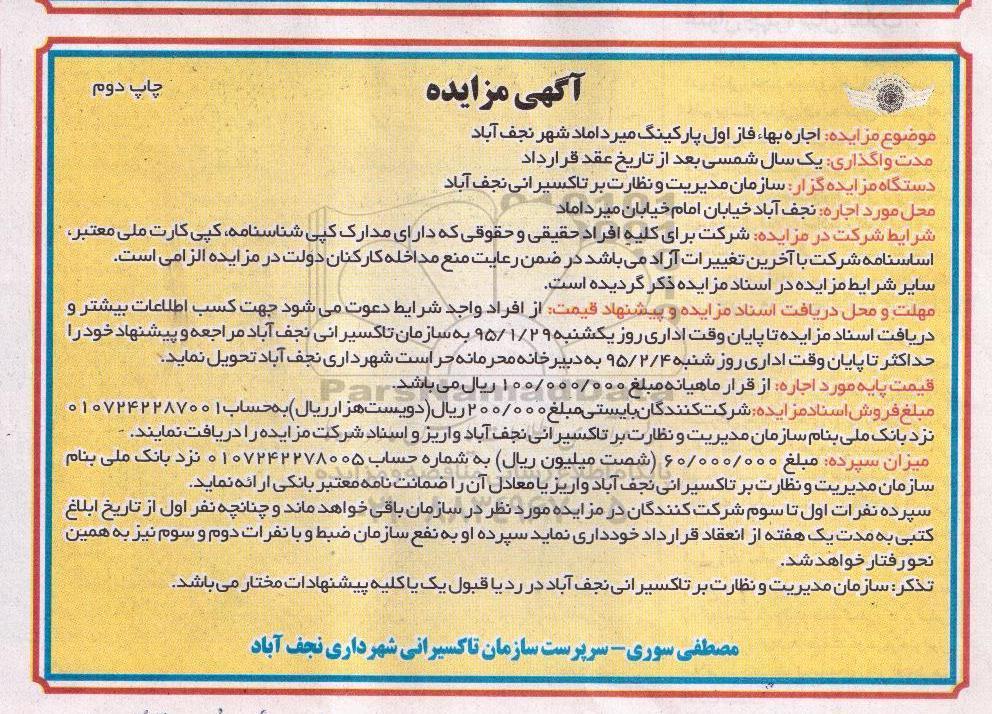 آگهی مزایده
چاپ دوم
موضوع مزایده: اجاره بهاء فاز اول پارکینگ میرداماد شهر نجف آباد
مدت واگذاری: یک سال شمسی بعد از تاریخ عقد قرارداد
دستگاه مزایده گزار: سازمان مدیریت و نظارت بر تاکسیرانی نجف آباد
محل مورد اجاره: نجف آباد خیابان امام خیابان میرداماد
شرایط شرکت در مزایده: شرکت برای کلیه افراد حقیقی و حقوقی که دارای مدارک کپی شناسنامه، کپی کارت ملی معتبر،
اساسنامه شرکت با آخرین تغییرات آزاد می باشد در ضمن رعایت منع مداخله کارکنان دولت در مزایده الزامی است.
سایر شرایط مزایده در اسناد مزایده ذکر گردیده است.
مهلت و محل دریافت اسناد مزایده و پیشنهاد قیمت: از افراد واجد شرایط دعوت می شود جهت کسب اطلاعات بیشتر و
دریافت اسناد مزایده تا پایان وقت اداری روز یکشنبه ۹۵/۱/۲۹ به سازمان تاکسیرانی نجف آباد مراجعه و پیشنهاد خود را
حداکثر تا پایان وقت اداری روز شنبه ۹۵/۲/۴ به دبیرخانه محرمانه حراست شهرداری نجف آباد تحویل نماید.
قیمت پایه مورد اجاره: از قرار ماهیانه مبلغ ۱۰۰/۰۰۰/۰۰۰ ریال می باشد.
مبلغ فروش اسناد مزایده: شرکت کنندگان بایستی مبلغ ۲۰۰/۰۰۰ ریال (دویست هزار ریال) به حساب ۰۱۰۷۲۴۲۲۸۷۰۰۱
نزد بانک ملی بنام سازمان مدیریت و نظارت بر تاکسیرانی نجف آباد واریز و اسناد شرکت مزایده را دریافت نمایند.
میزان سپرده: مبلغ ۶۰/۰۰۰/۰۰۰ (شصت میلیون ریال) به شماره حساب ۰۱۰۷۲۴۲۲۷۸۰۰۵ نزد بانک ملی بنام
سازمان مدیریت و نظارت بر تاکسیرانی نجف آباد واریز یا معادل آن را ضمانت نامه معتبر بانکی ارائه نماید.
سپرده نفرات اول تا سوم شرکت کنندگان در مزایده مورد نظر در سازمان باقی خواهد ماند و چنانچه نفر اول از تاریخ ابلاغ
کتبی به مدت یک هفته از انعقاد قرارداد خودداری نماید سپرده او به نفع سازمان ضبط و با نفرات دوم و سوم نیز به همین
نحو رفتار خواهد شد.
تذکر: سازمان مدیریت و نظارت بر تاکسیرانی نجف آباد در رد یا قبول یک یا کلیه پیشنهادات مختار می باشد.
مصطفی سوری - سرپرست سازمان تاکسیرانی شهرداری نجف آباد
ParsNamadData